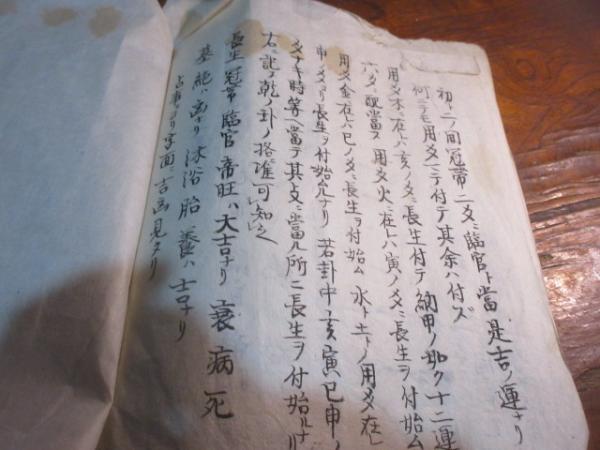 初ト二ノ間冠帯二爻ニ臨官ト當是吉ノ運ナリ
何ニテモ用爻ニテ付テ其余ハ付ズ
用爻木ニ在ハ亥ノ爻ニ長生付テ納甲ノ如ク十二運
六爻ニ配當ス用爻火ニ在ハ寅ノ爻ニ長生ヲ付始ム
用爻金ニ在ハ巳ノ爻ニ長生ヲ付始ム水ト土トノ用爻在ハ
申ノ爻ヨリ長生ヲ付始ルナリ若卦中亥寅巳申ノ
爻ナキ時等ヘ當テ其爻ニ當ル所ニ長生ヲ付始ルナリ
右ニ記ス乾ノ卦ノ格準可知之
長生冠帯臨官帝旺ハ大吉ナリ衰病死
墓絶ハ凶ナリ沐浴胎養ハ吉ナリ
占事ヨリ字面ニ吉凶見ヘタリ